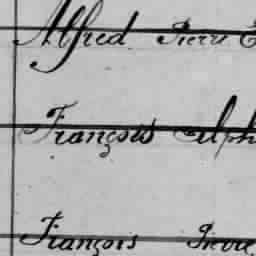 Alfred Pierre
François Alph
François Pierre